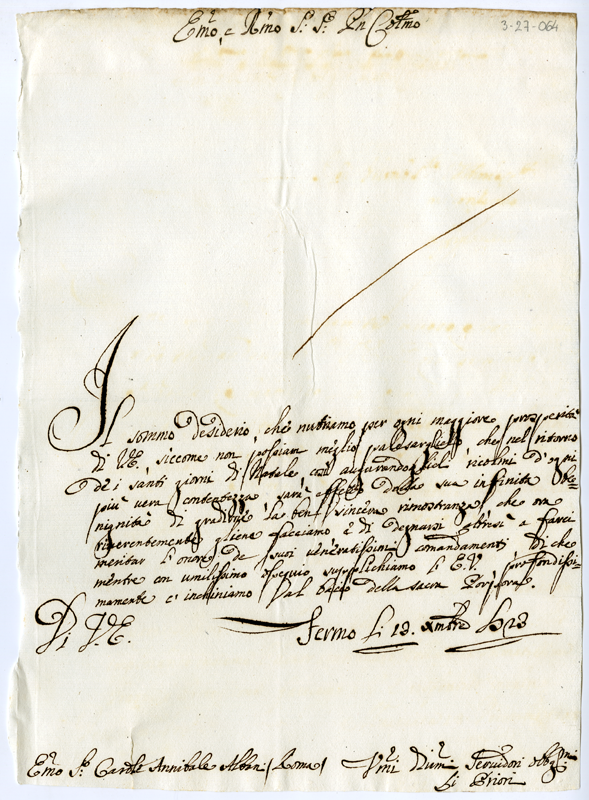 Emo, e Rmo Sr. Sr. Pn Colmo
3-27-064
Il sommo desiderio, che nutriamo per ogni maggiore prosperità
di V.E., siccome non possiam meglio palesarglielo, che nel ritorno
de i santi giorni di Natale con augurandoglieli ricolmi d'ogni
più vera contentezza, sarà effetto della sua infinita be=
nignità di gradire la ben sincera rimostranza, che ora
riverentemente gliene facciamo, e di degnarsi altresì a farci
meritar l'onore de suoi veneratissimi comandamenti, di che
mentre con umilissimo ossequio supplichiamo l'E.V. profondissi=
mamente c'inchiniamo al bacio della sacra Porpora.
Di V.E.
Fermo li 13. Xmbre
Emo Sr. Cardle Annibale Albani (Roma)
Vmi Diumi Servidori Obbgmi
Li Priori